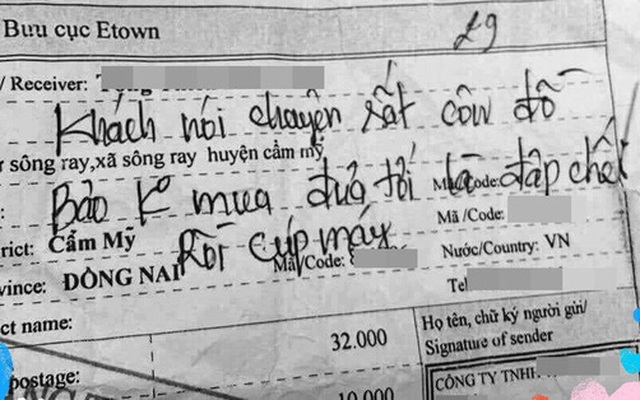 Bưu cục Etown
29
/ Receiver:
Khách nói chuyện rất côn đồ
sông ray,xã sông ray huyện cẩm mỹ
Bảo K mua đưa tới là đập chết
Mã/Code:
Mã /Code:
rict: Cẩm Mỹ
Rồi cúp máy
Mã/Code:
Nước/Country: VN
vince: ĐỒNG NAI
Tel
ct name:
32.000
Họ tên, chữ ký người gửi/
Signature of sender
postage:
10.000
CÔNG TY TNHH